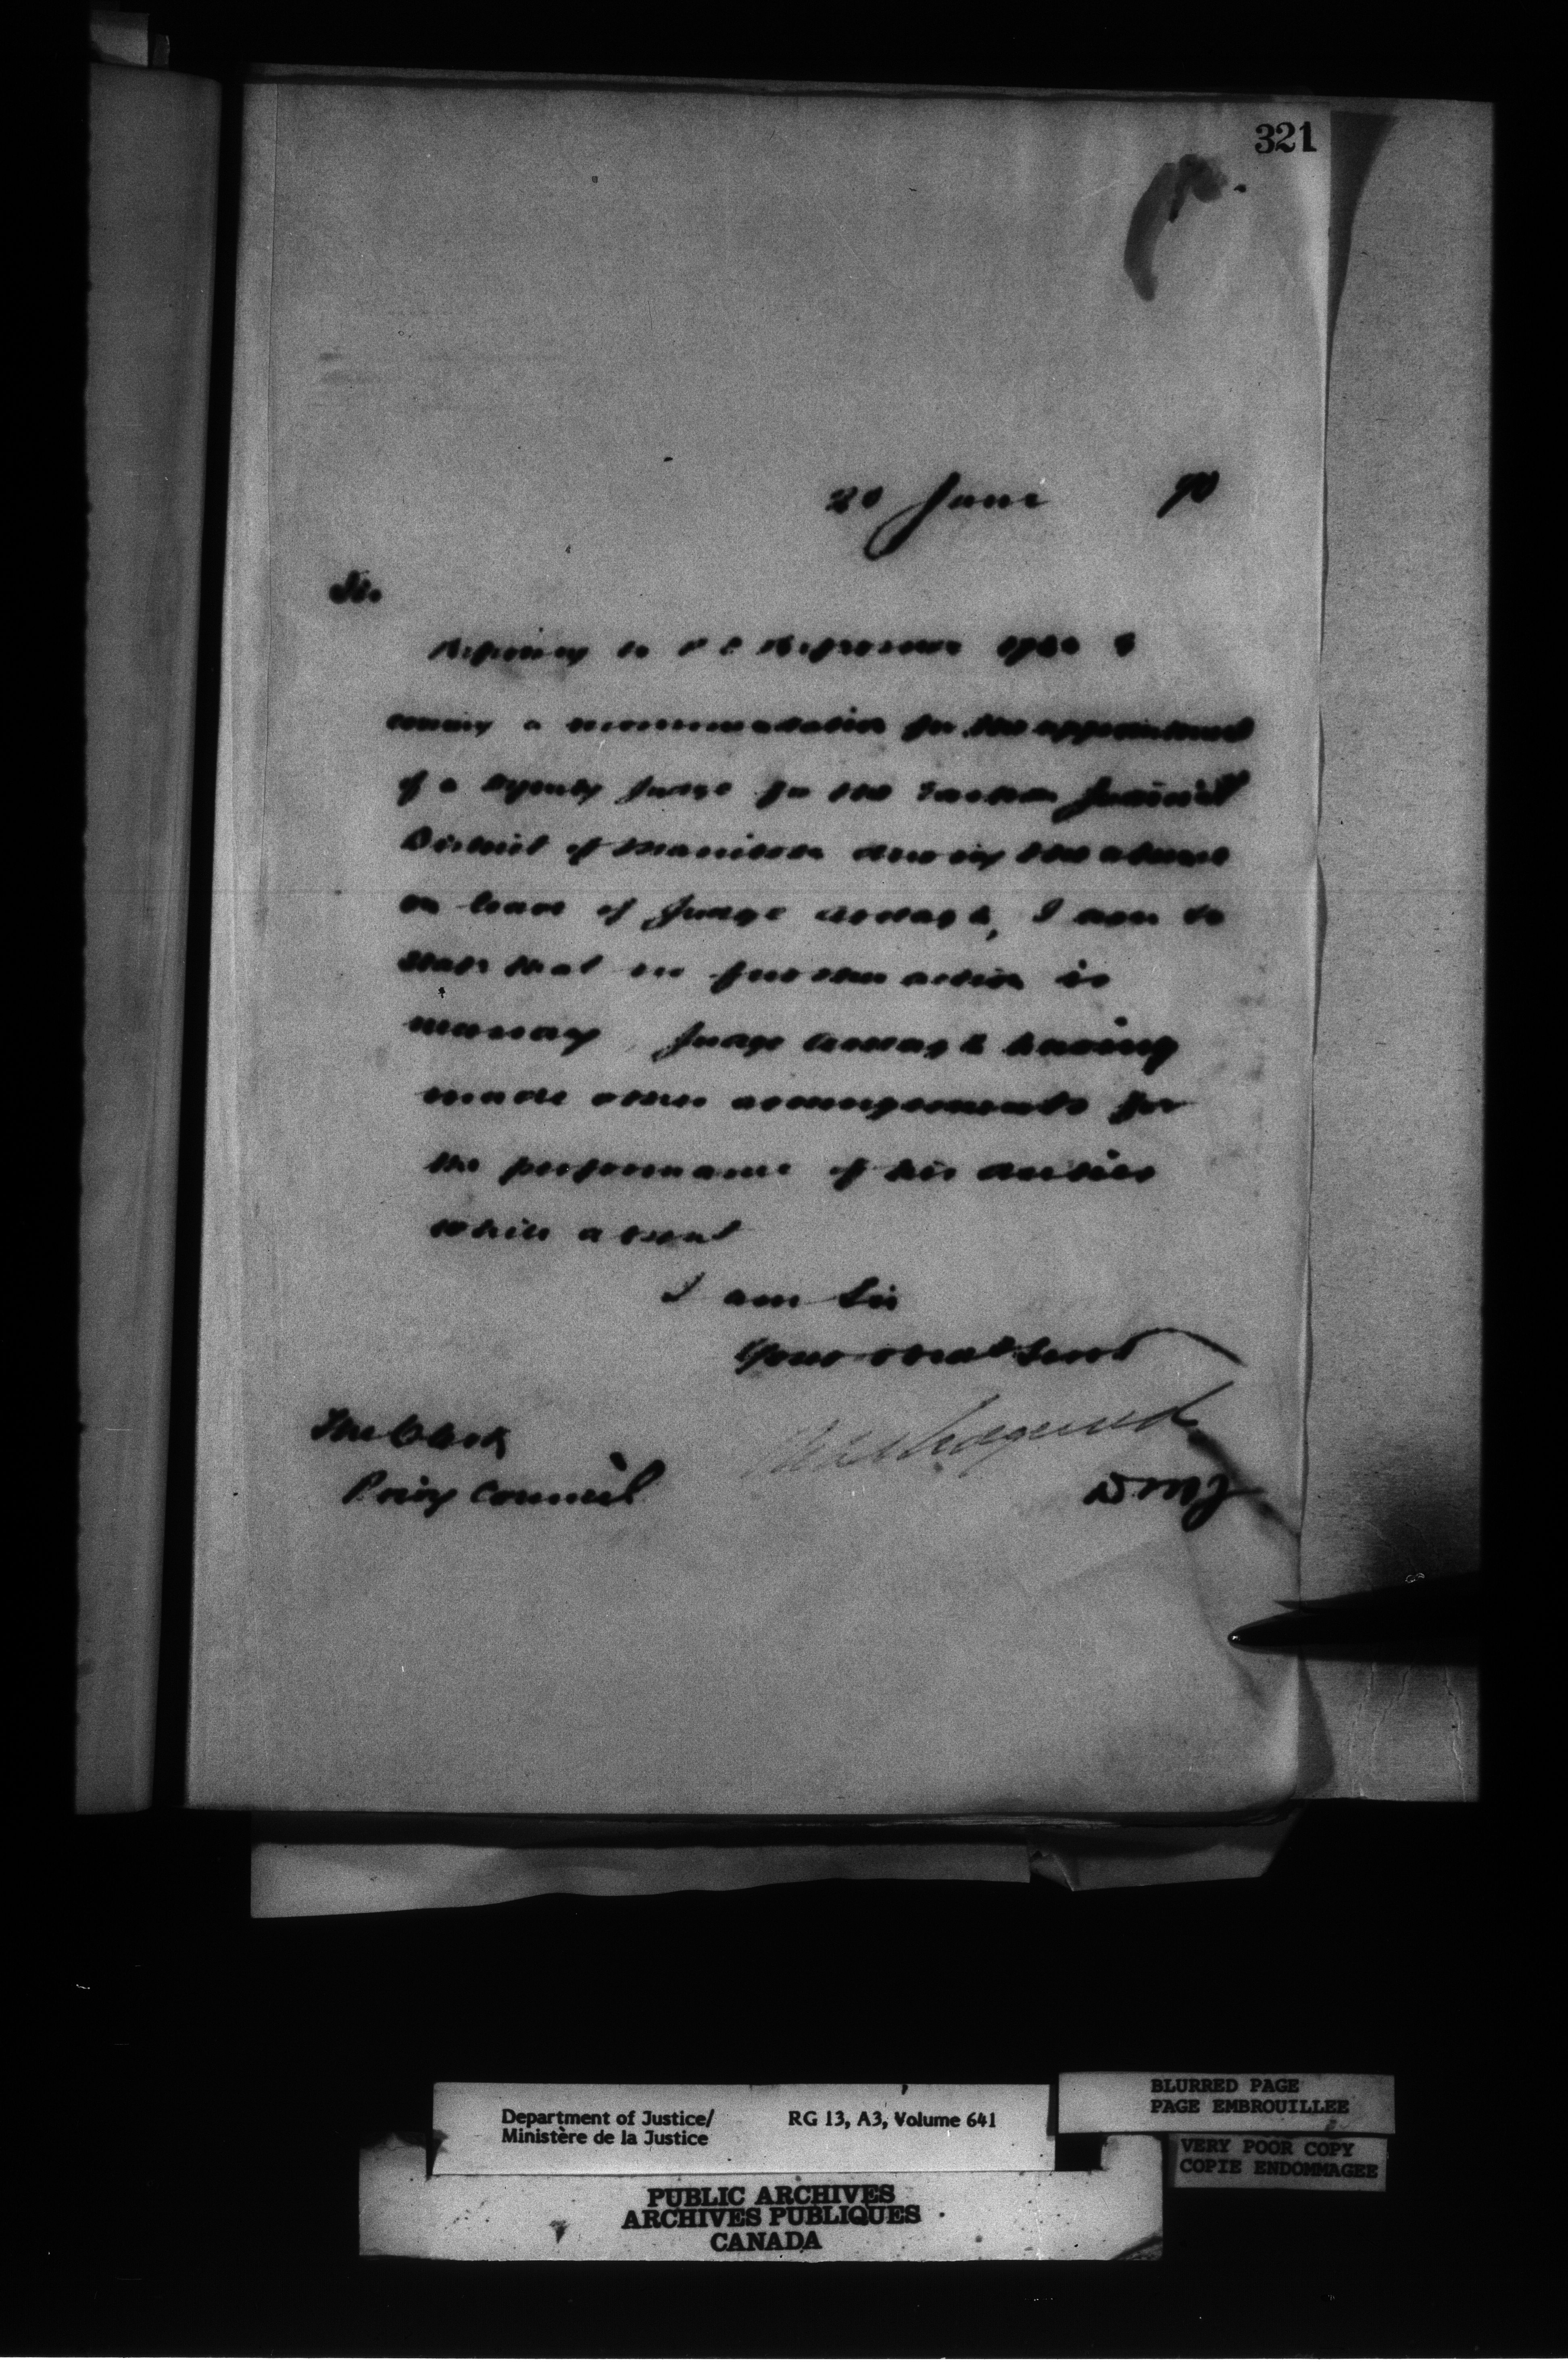 321
20 June 90
Sir
Referring to P C Reference
a recommendation for the appointment
of a Deputy Judge for the Eastern Judicial
District of Manitoba during the absence
on leave of Judge I am to
state that no further action is
necessary Judge having
made other arrangements for
the performance of his duties
while absent
I am Sir
Your obedt Servt
Sedgewick
The Clerk
Privy Council
D M J
Department of Justice/ RG 13, A3, Volume 641
Ministère de la Justice
BLURRED PAGE
PAGE EMBROUILLEE
VERY POOR COPY
COPIE ENDOMMAGEE
PUBLIC ARCHIVES
ARCHIVES PUBLIQUES
CANADA